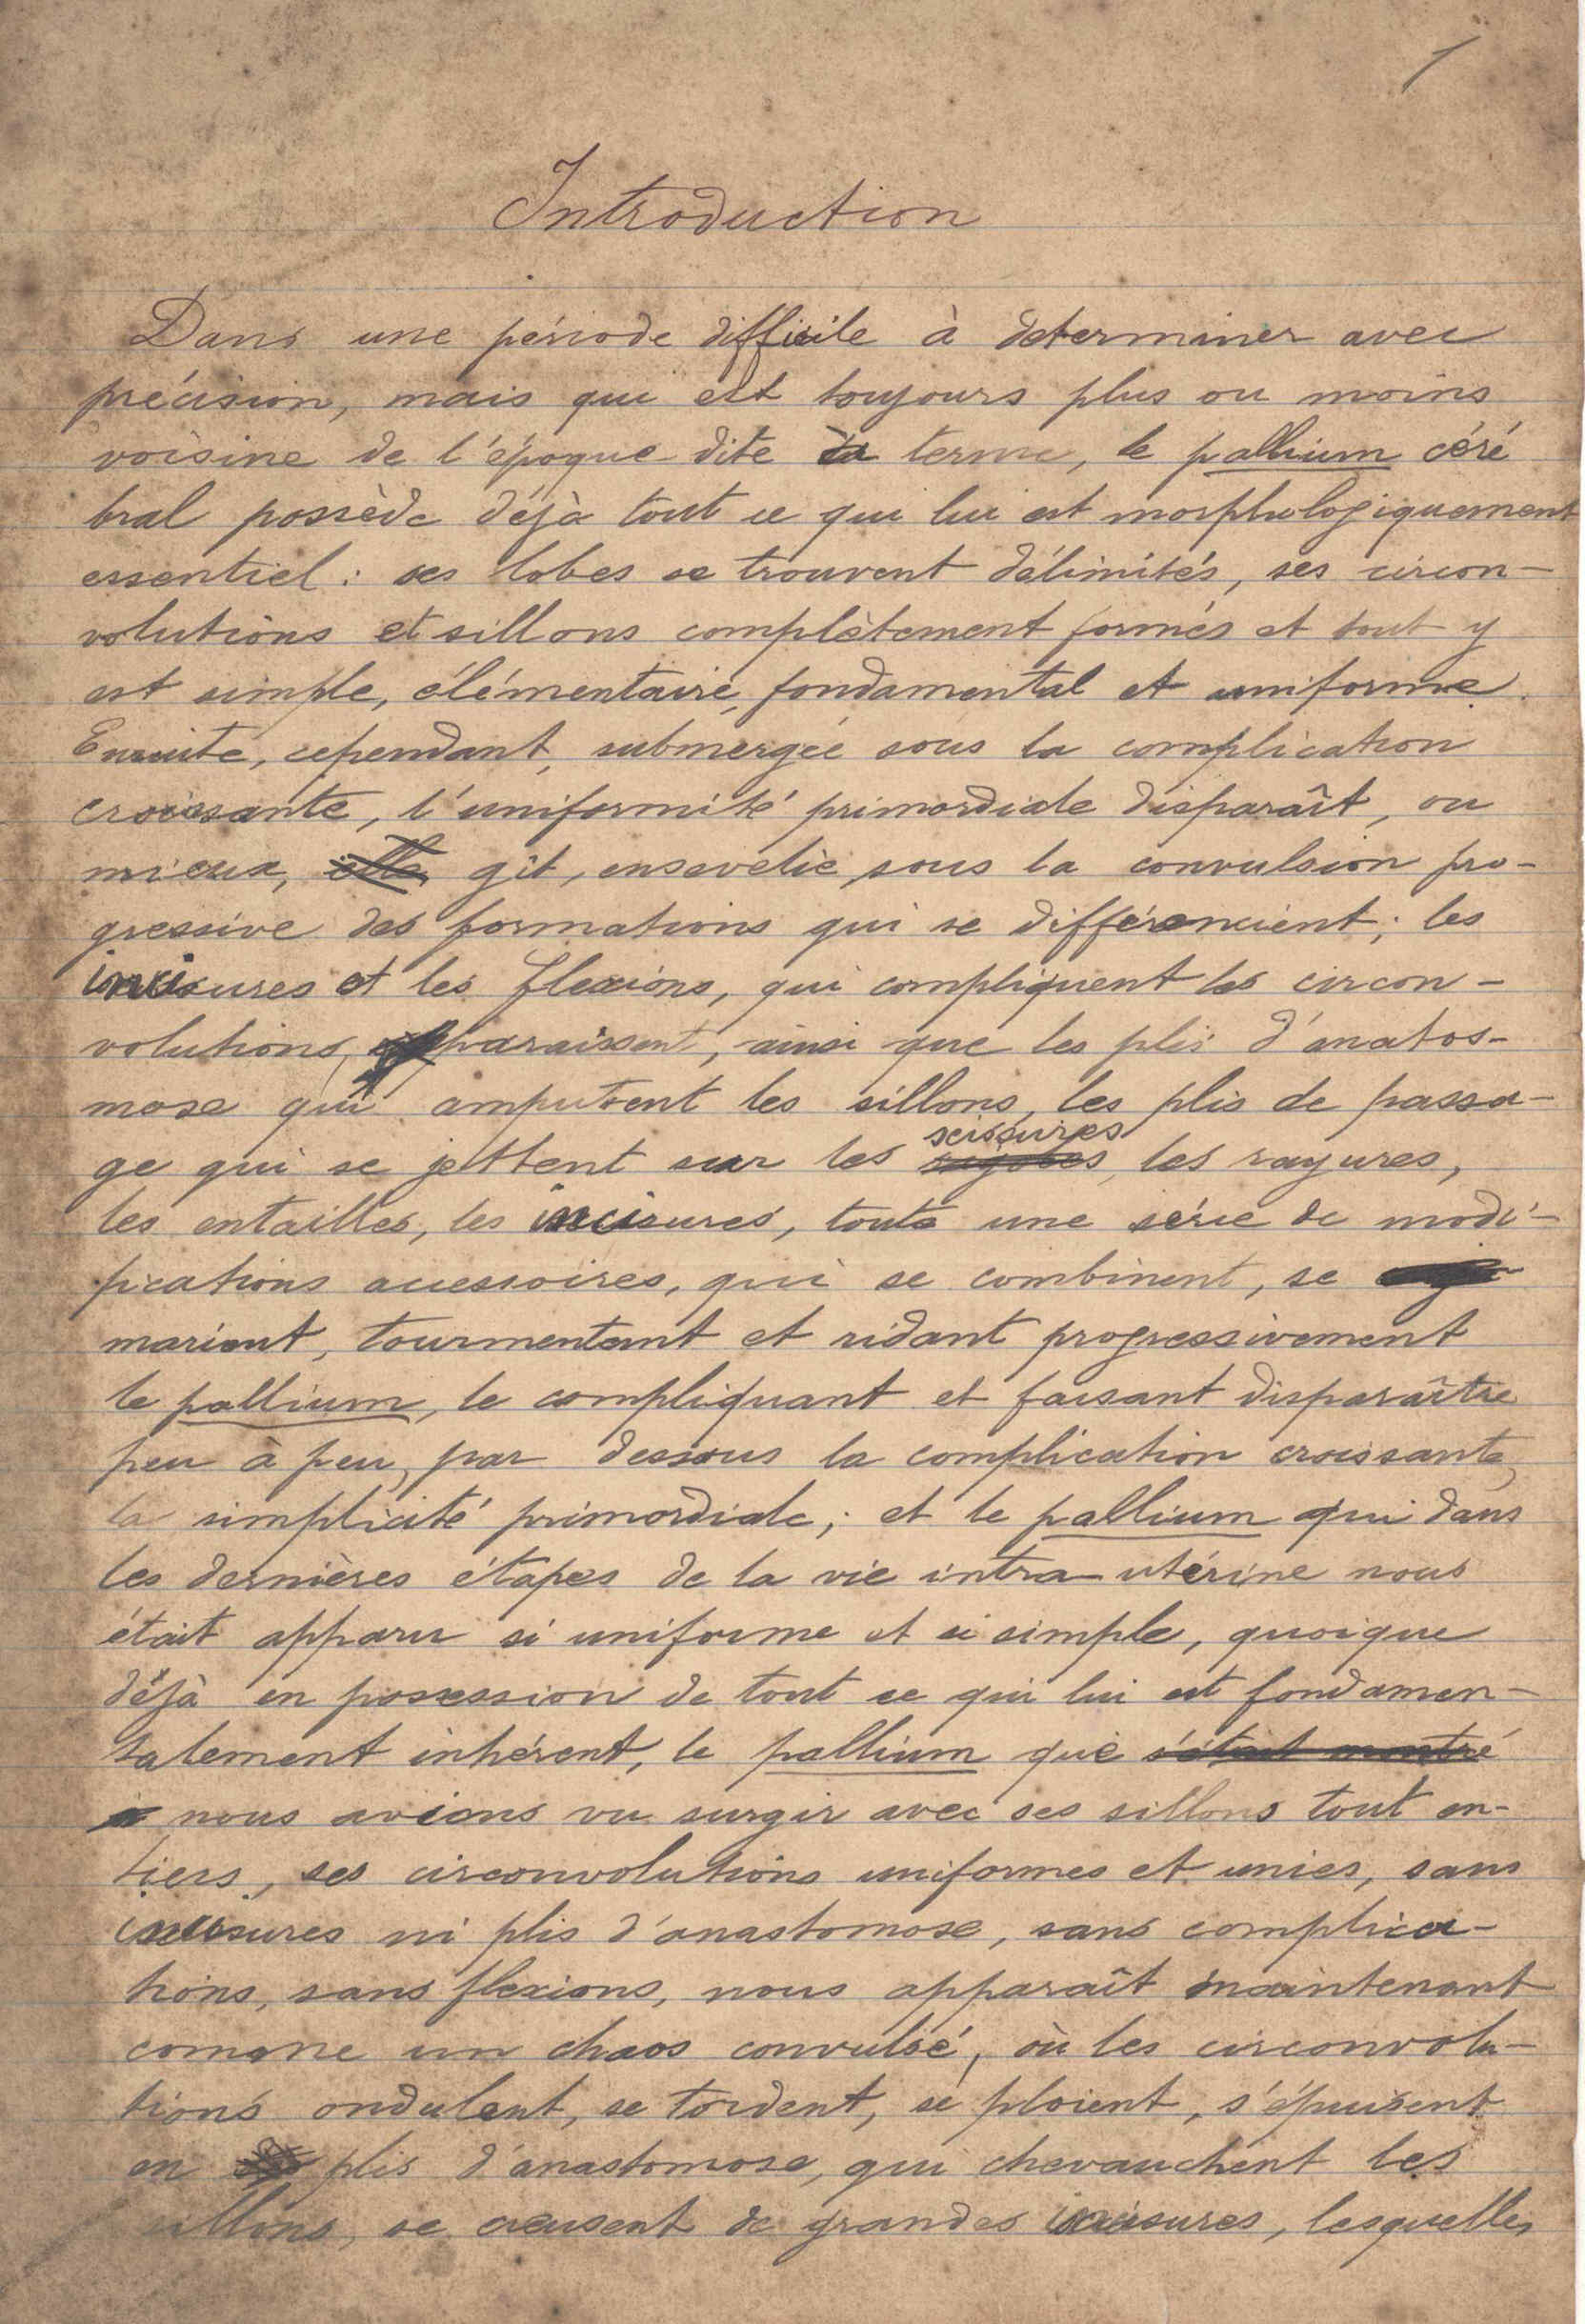 1
Introduction
Dans une période difficile à déterminer avec
précision, mais qui est toujours plus ou moins
voisine de l'époque dite à terme, le pallium céré
bral possède déjà tout ce qui lui est morphologiquement
essentiel : ses lobes se trouvent délimités, ses circon-
volutions et sillons complètement formés et tout y
est simple, élémentaire, fondamental et uniforme.
Ensuite, cependant, submergée sous la complication
croissante, l'uniformité primordiale disparaît, ou
mieux, elle gît, ensevelie, sous la convulsion pro-
gressive des formations qui se différencient; les
incisures et les flexions, qui compliquent les circon-
volutions, apparaissent, ainsi que les plis d'anatos-
mose qui amputent les sillons, les plis de passa-
scissures
ge qui se jettent sur les les rayures,
les entailles, les incisures, toute une série de modi-
fications accessoires, qui se combinent, se
marient, tourmentant et ridant progressivement
le pallium, le compliquant et faisant disparaître
peu à peu, par dessous la complication croissante,
la simplicité primordiale; et le pallium qui dans
les dernières étapes de la vie intra-utérine nous
était apparu si uniforme et si simple, quoique
déjà en possession de tout ce qui lui est fondamen-
talement inhérent, le pallium que s'était montré
nous avions vu surgir avec ses sillons tout en-
tiers, ses circonvolutions uniformes et unies, sans
incisures ni plis d'anastomose, sans complica-
tions, sans flexions, nous apparaît maintenant
comme un chaos convulsé, où les circonvolu-
tions ondulent, se tordent, se ploient, s'épuisent
en plis d'anastomose, qui chevauchent les
sillons, se creusent de grandes incisures, lesquelles